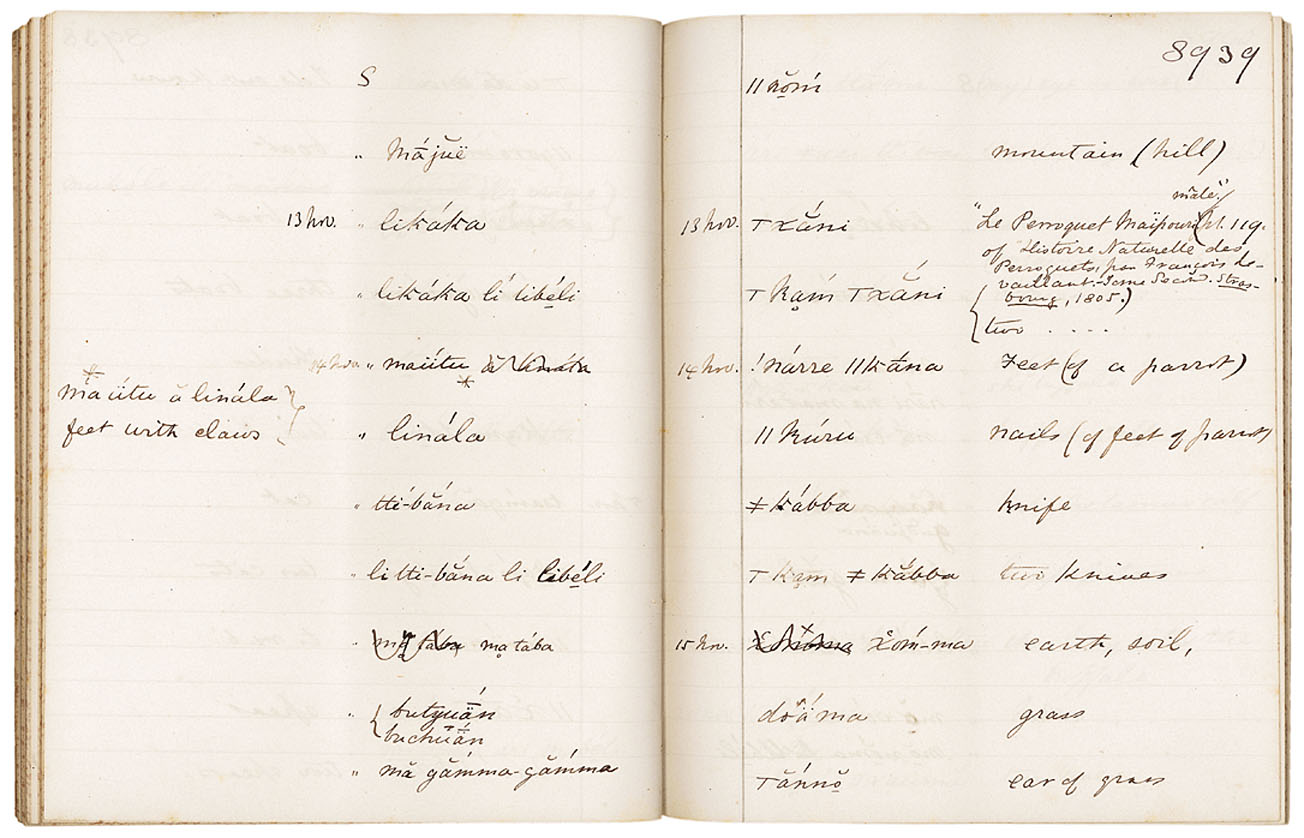 S
" Májŭĕ
13 Nov. " likáka
" likáka lí libéli
14 Nov. " maiítu
* maiítu ă linála
feet with claws
" linála
" tti-băńa
" li tti-băńa li libéli
" ma̤ tába
" butyuä́n
buchŭä́n
" mă găḿma-găḿma
8939
ǁn̥ŏḿ
mountain (hill)
13 Nov. Txăńi "Le Perroquet Maïpouri" male (pl. 119.
of "Histoire Naturelle des
Perroquets, par François Le-
vaillant.
bourg, 1805.)
T ka̤ḿ Txăńi two ....
14 Nov. !nárre ǁkăńa Feet (of a parrot)
ǁkúru nails (of feet of parrot)
ǂkábba knife
T ka̤m ǂkăbba two knives
15 Nov. x̊oḿ-ma earth, soil,
dŏắma grass
Tăńnŏ ear of grass